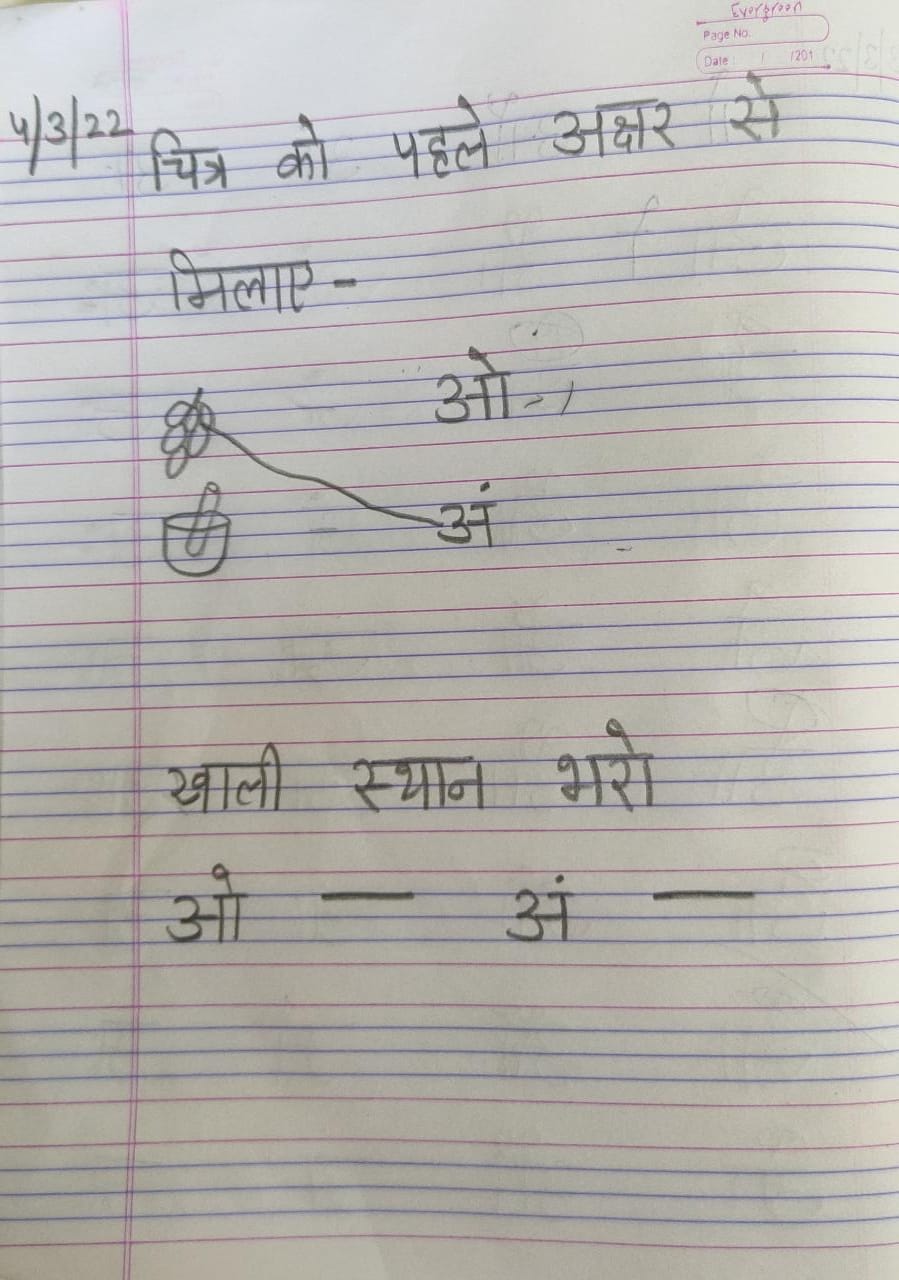 Evergreen
Page No.
Date / /201
4/3/22
चित्र को पहले अक्षर से
मिलाए -
ओ -
अं
खाली स्थान भरो
ओ — अं —